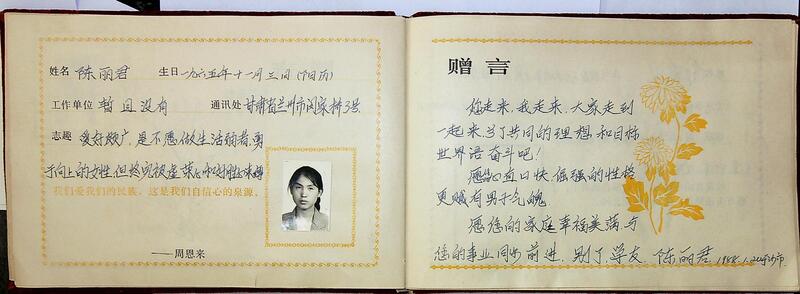 姓名 陈丽君 生日 一九六五年十一月三日(旧历)
工作单位 暂且没有 通讯处 甘肃省兰州市闵家桥3号
志趣 爱好颇广,是不愿做生活弱者,勇
于向上的女性,但终究被虚荣心和
我们爱我们的民族,这是我们自信心的泉源。
——周恩来
赠言
您走来,我走来,大家走到
一起来,为了共同的理想和目标
世界语奋斗吧!
愿心直口快、倔强的性格
更赋有男子气魄
愿您的家庭幸福美满,与
您的事业同步前进,别了,学友,陈丽君 1988.1.